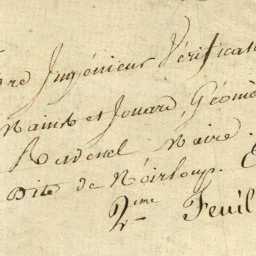 re Ingénieur Vérificat
et Jouard, Géomè
Maire.
Dite de Noirloup.
2me Feuil